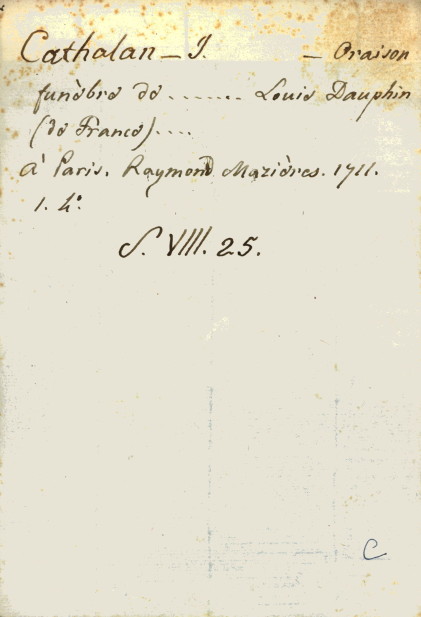 Cathalan - J. - Oraison
funèbre de ....... Louis Dauphin
(de France)....
à Paris. Raymond Mazières. 1711.
1. 4°.
S. VIII. 25.
C